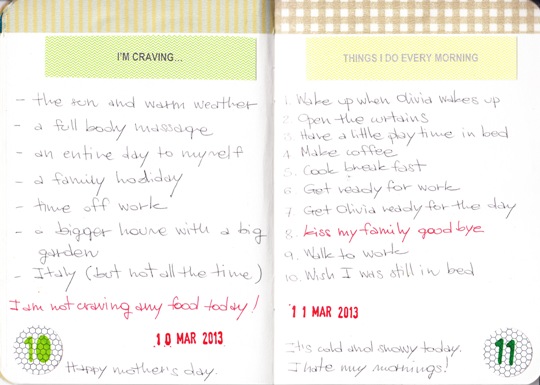 I'M CRAVING...
- the sun and warm weather
- a full body massage
- an entire day to myself
- a family holiday
- time off work
- a bigger house with a big
garden
- Italy (but not all the time)
I am not craving any food today!
10 MAR 2013
10
Happy mother's day.
THINGS I DO EVERY MORNING
1. Wake up when Olivia wakes up
2. Open the curtains
3. Have a little play time in bed
4. Make coffee
5. Cook breakfast
6. Get ready for work
7. Get Olivia ready for the day
8. kiss my family goodbye
9. Walk to work
10. Wish I was still in bed
11 MAR 2013
It's cold and snowy today.
I hate my mornings!
11